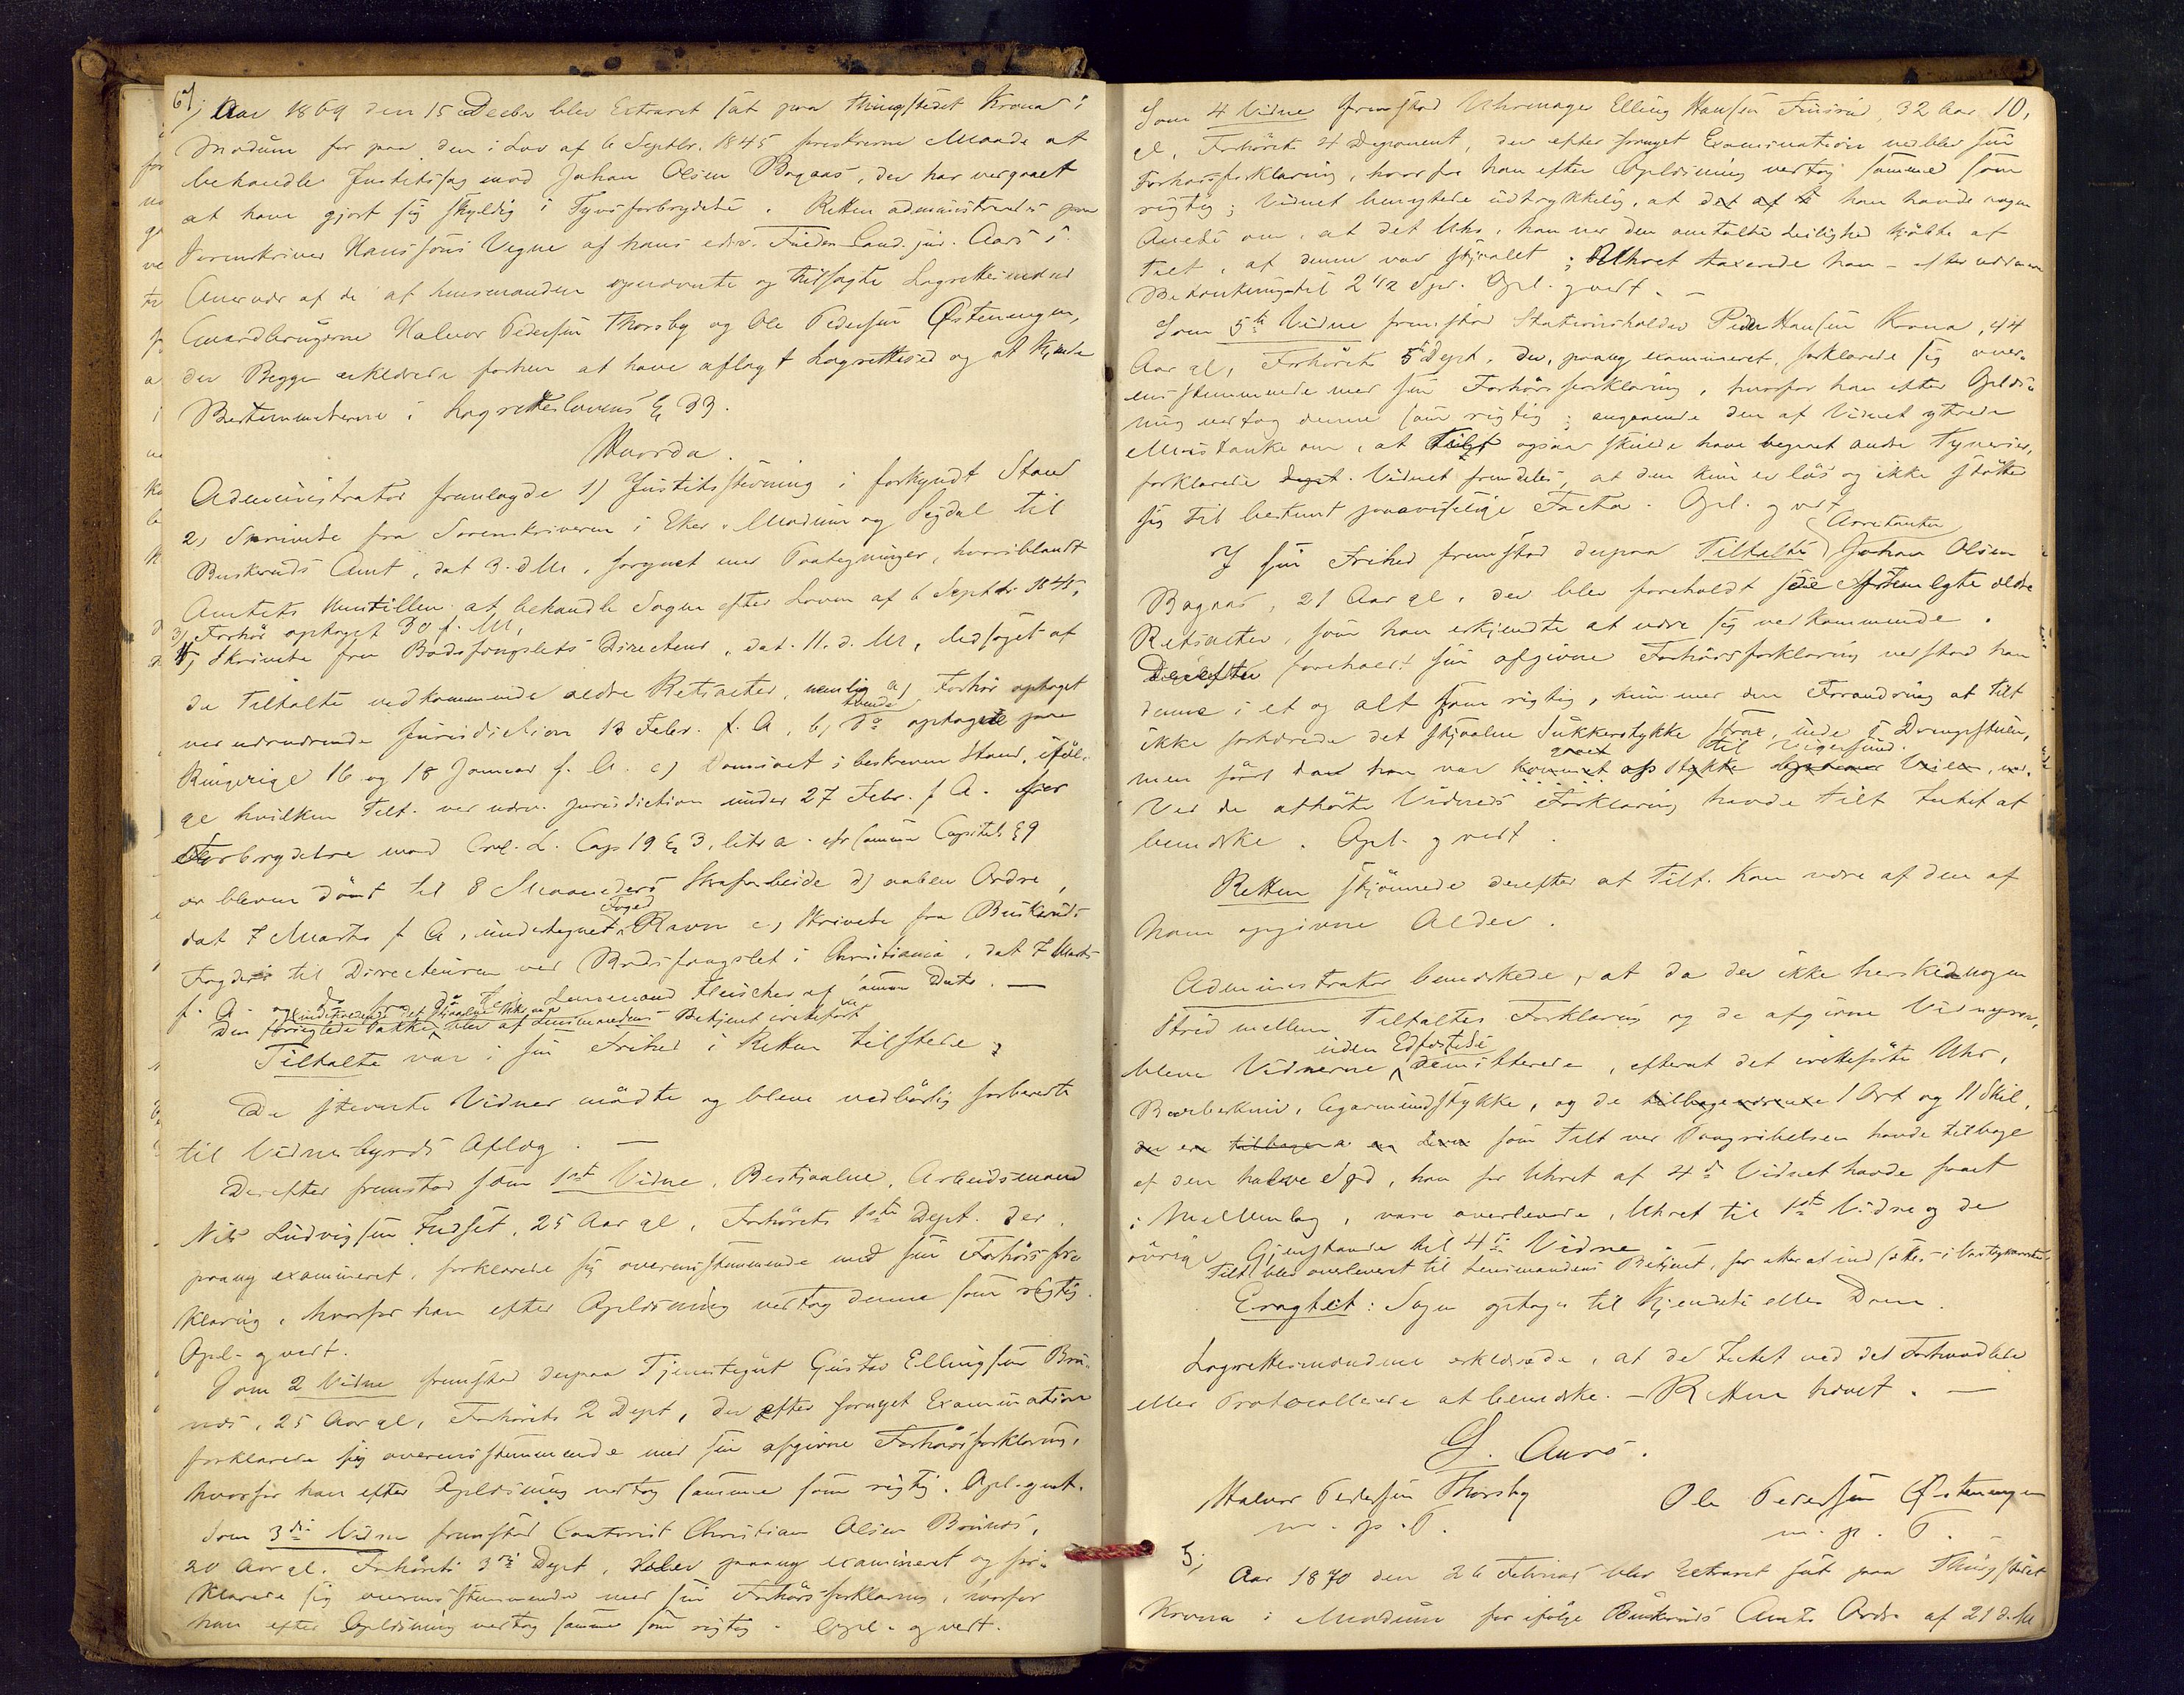 67, Aar 1869 den 15 Decbr blev Extraret sat paa Thingstedet Krona i
Modum for paa den i Lov af 6 Septbr. 1845 foreskrevne Maade at
behandle Justitssag mod Johan Olsen Bagaas, der har vedgaaet
at have gjort sig skyldig i Tyvsforbrydelse. Retten administreredes paa
Sorenskriver Hanssons Vegne af hans edsv. Fuldm. Cand. jur. Aars i
Overvær af de af Lensmanden opnævnte og tilsagte Lagrettesmænd
Gaardbrugerne Halvor Pedersen Thorsby og Ole Pedersen Østenengen,
der Begge erklærede forhen at have aflagt Lagrettesed og at kjende
Bestemmelserne i Lagretteslovens § 33.
Hvorda.
Administrator fremlagde 1) Justitsstevning i forkyndt Stand
2) Skrivelse fra Sorenskriveren i Eker, Modum og Sigdal til
Buskeruds Amt, dat 3. d. M., forsynet med Paategninger, hvoriblandt
Amtets Meustillen at behandle Sagen efter Loven af 6 Septbr 1845,
3) Forhør optaget 30 f. M.,
4) Skrivelse fra Bodsfængslets Directeur, dat. 11. d. M., ledsaget af
de Tiltalte vedkommende ældre Retsacter, nemlig a) Forhør optaget
ved nærværende Jurisdiction 13 Febr. f. A., b) do optagne paa
Ringerige 16 og 18 Januar f. A. c) Domsact i beskreven Stand, iføl-
ge hvilken Tilt. ved nærv. Jurisdiction under 27 Febr. f. A. for
Forbrydelse mod Crl. L. Cap 19 § 3, litr a. cfr samme Capitels § 9
er bleven dømt til 8 Maaneders Strafarbeide d) aaben Ordre,
dat 7 Marts f A, undertegnet Foged Ravn e) Skrivelse fra Buskeruds
Fogderi til Directeuren ved Bodsfængslet i Christiania, dat 7 Marts
f. A. og do fra do til Lensmand Fleischer af samme Dato. —
Den forseglede Pakke indeholdende det stjaalne Uhr m. v. blev af Lensmandens Betjent iretteført
Tiltalte var i sin Frihed i Retten tilstede;
De stevnte Vidner mødte og bleve vedbørlig forberedte
til Vidnesbyrds Aflæg. —
Derefter fremstod som 1ste Vidne, Bestjaalne, Arbeidsmand
Nils Ludvigsen Fudset, 25 Aar gl, Forhørets 1ste Dept. der,
paany examineret, forklarede sig overensstemmende med sin Forhørsfor-
klaring, hvorfor han efter Oplæsning vedtog denne som rigtig.
Opl. g vedt.
Som 2 Vidne fremstod derpaa Tjenestegut Gustav Ellingsen Bru-
næs, 25 Aar gl, Forhørets 2 Dept, der efter fornyet Examination
forklarede sig overensstemmende med sin afgivne Forhørsforklaring,
hvorfor han efter Oplæsning vedtog samme som rigtig. Opl. g vedt.
Som 3die Vidne fremstod Contorist Christian Olsen Brunæs,
20 Aar gl. Forhørets 3die Dept, blev paany examineret og for-
klarede sig overensstemmende med sin Forhørsforklaring, hvorfor
han efter Oplæsning vedtog samme som rigtig. Opl. g vedt.
Som 4 Vidne fremstod Uhrmager Elling Hansen Finsrud, 32 Aar 10,
gl, Forhørets 4 Deponent, der efter fornyet Examination vedblev sin
Forhørsforklaring, hvorfor han efter Oplæsning vedtog samme som
rigtig; Vidnet benegtede udtrykkelig, at han havde nogen
Anelse om, at det Uhr, han ved den omtalte Leilighed kjøbte af
Tilt, af denne var stjaalet; Uhret taxerede han - efter nærmere
Betænkning til 2 1/2 Spd. Opl. g vedt. —
Som 5te Vidne fremstod Stationsholder Peder Hansen Krona, 44
Aar gl, Forhørets 5te Dept. der, paany examineret, forklarede sig over-
ensstemmende med sin Forhørsforklaring, hvorfor han efter Oplæs-
ning vedtog denne som rigtig; angaaende den af Vidnet yttrede
Mistanke om, at Tilt ogsaa skulde have begaaet andre Tyverier,
forklarede Vidnet fremdeles, at den kun er løs og ikke støtter
sig til bestemt paaviselige Facta. Opl. g vedt
I sin Frihed fremstod derpaa Tiltalte Arrestanten Johan Olsen
Bagaas, 21 Aar gl. der blev foreholdt de fremlagte ældre
Retsacter, som han erkjendte at være sig vedkommende.
Derefter foreholdt sin afgivne Forhørsforklaring vedstod han
denne i et og alt som rigtig, kun med den Forandring at Tilt
ikke fortærede det stjaalne Sukkerstykke strax, inde i Drengestuen,
men først da han var gaaet et Stykke til Vigersund.
Ved de afhørte Vidners Forklaring havde Tilt Intet at
bemærke. Opl. g vedt.
Retten skjønnede derefter at Tilt. kan være af den af
ham opgivne Alder.
Administrator bemærkede, at da der ikke hersked nogen
Strid mellem Tiltaltes Forklaring og de afgivne Vidneprov,
bleve Vidnerne uden Edfæstelse demitterede, efterat det iretteførte Uhr,
Barberkniv, Cigarmundstykke, og de tilbageværende 1 Ort og 11 Skil,
som Tilt ved Paagribelsen havde tilbage
af den halve Spd, han for Uhret af 4de Vidnet havde faaet
i Mellemlag, vare overleverede, Uhret til 1ste Vidne og de
øvrige Gjenstande til 4de Vidne.
Tilt blev overleveret til Lensmandens Betjent, for atter at indsættes i Varetægtsarrest.
Eragtet: Sagen optages til Kjendelse eller Dom.
Lagrettesmændene erklærede, at de Intet ved det Forhandlede
eller Protocollerede at bemærke. — Retten hævet. —
G. Aars.
Halvor Pedersen Thorsby Ole Pedersen Østenengen
m. p. P. m. p. P. —
5, Aar 1870 den 26 Februar blev Extraret sat paa Thingstedet
Krona i Modum for ifølge Buskeruds Amts Ordre af 21 d. M